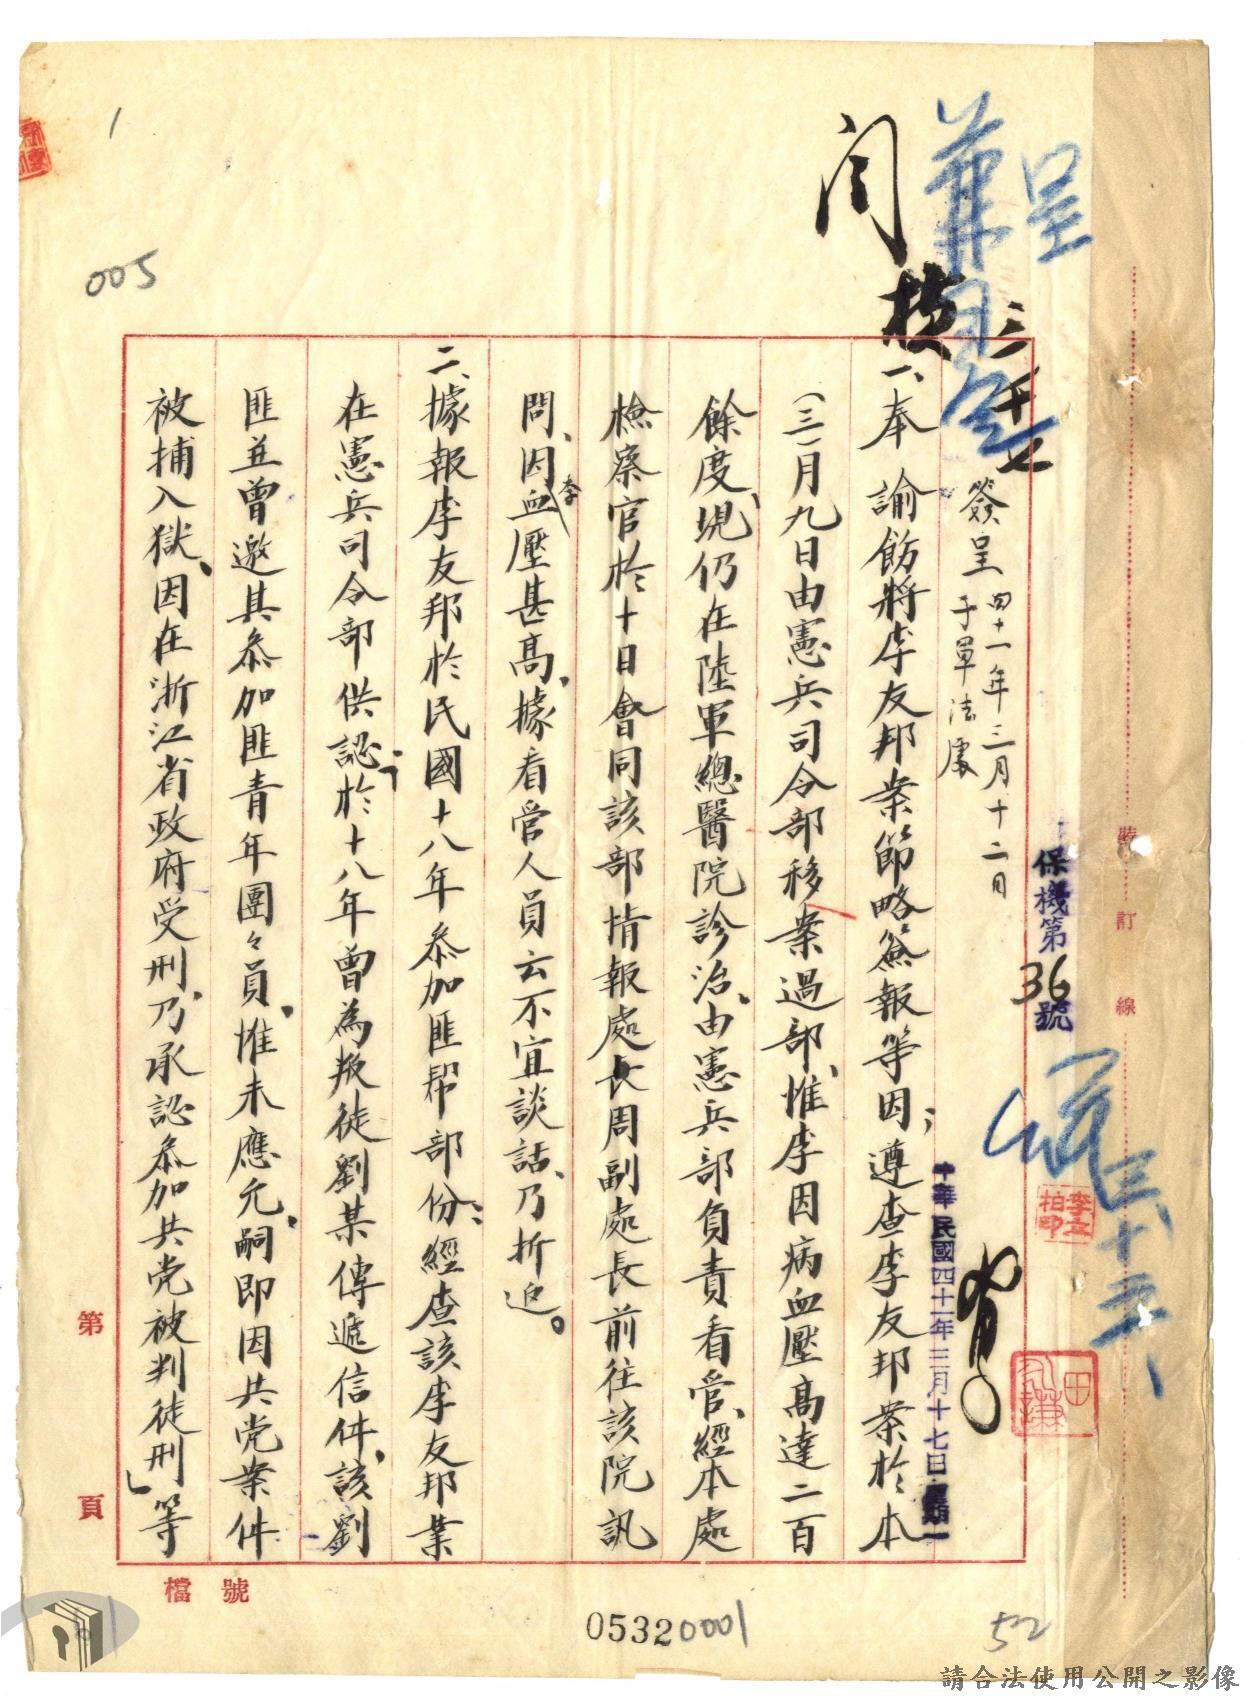 呈
閱
三
簽呈 四十一年三月十二日
于軍法處
一、奉 諭飭將李友邦案節略簽報等因；遵查李友邦案於本
(三)月九日由憲兵司令部移案過部、惟李因病血壓高達二百
餘度、現仍在陸軍總醫院診治、由憲兵部負責看管、經本處
檢察官於十日會同該部情報處長周副處長前往該院訊
問、因李血壓甚高、據看管人員云不宜談話、乃折返。
二、據報李友邦於民國十八年叅加匪幫部份；經查該李友邦業
在憲兵司令部供認；「於十八年曾為叛徒劉某傳遞信件、該劉
匪並曾邀其叅加匪青年團々員、惟未應允、嗣即因共党案件
被捕入獄、因在浙江省政府受刑、乃承認叅加共党被判徒刑」等
保機第36號
中華民國四十一年三月十七日星期一
裝
訂
線
第
頁
檔 號
1
005
05320001
52
請合法使用公開之影像